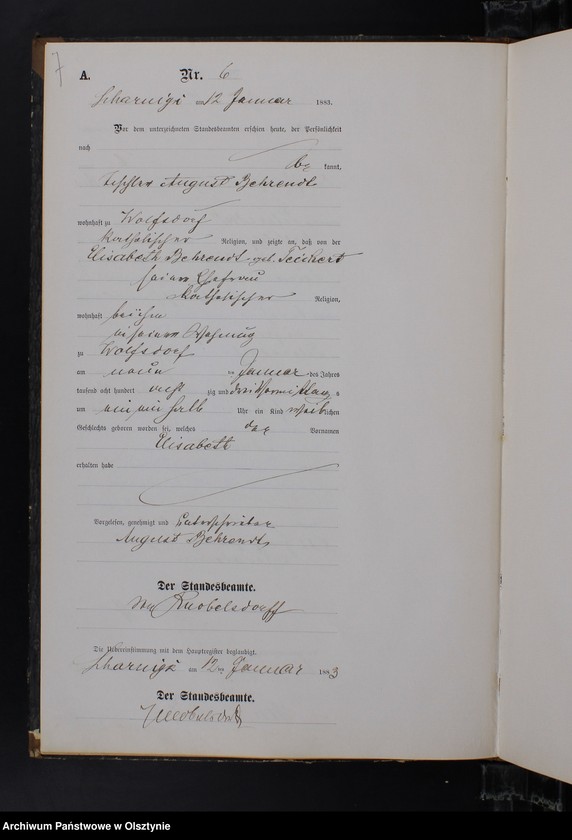 7
A. Nr. 6
Scharnigk am 12 Januar 1883.
Vor dem unterzeichneten Standesbeamten erschien heute, der Persönlichkeit
nach
be kannt,
August Behrendt
wohnhaft zu Wolfsdorf
katholischer Religion, und zeigte an, daß von der
Elisabeth Behrendt geb. Teichert
seiner Ehefrau
katholischer Religion,
wohnhaft bei ihm
in seiner Wohnung
zu Wolfsdorf
am neun ten Januar des Jahres
tausend acht hundert acht zig und drei Vormittags
um ein ein halb Uhr ein Kind weib lichen
Geschlechts geboren worden sei, welches den Vornamen
Elisabeth
erhalten habe
Vorgelesen, genehmigt und unterschrieben
August Behrendt
Der Standesbeamte.
von Knobelsdorff
Die Uebereinstimmung mit dem Hauptregister beglaubigt.
Scharnigk am 12ten Januar 1883
Der Standesbeamte.
Knobelsdorff
Archiwum Państwowe w Olsztynie